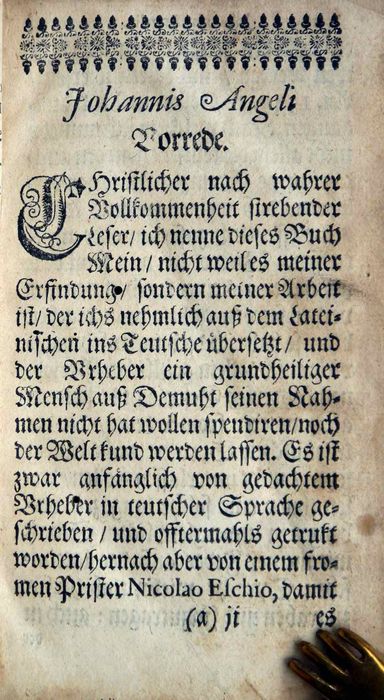 Johannis Angeli
Vorrede.
CHristlicher nach wahrer
Vollkommenheit strebender
Leser/ ich nenne dieses Buch
Mein/ nicht weil es meiner
Erfindung/ sondern meiner Arbeit
ist/ der ichs nehmlich auß dem Latei-
nischen ins Teutsche übersetzt/ und
der Vrheber ein grundheiliger
Mensch auß Demuht seinen Nah-
men nicht hat wollen spendiren/ noch
der Welt kund werden lassen. Es ist
zwar anfänglich von gedachtem
Vrheber in teutscher Sprache ge-
schrieben / und offtermahls getrukt
worden/ hernach aber von einem fro-
men Prister Nicolao Eschio, damit
(a) ij es